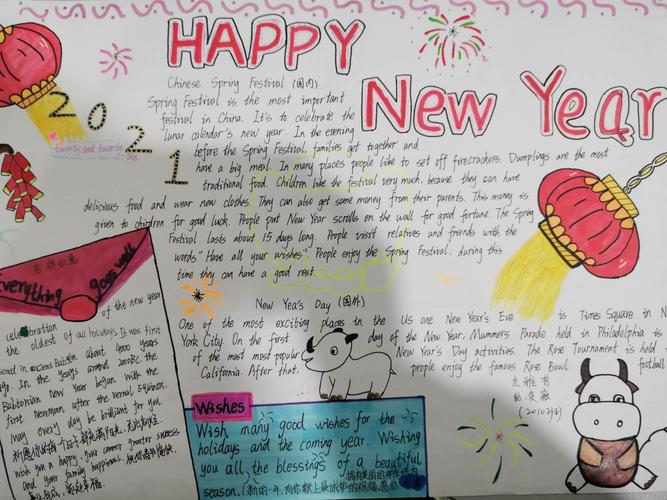 HAPPY
New Year
2021
twenty and twenty
Chinese Spring Festival (国内)
Spring Festival is the most important
festival in China. It's to celebrate the
lunar calendar's new year. In the evening
before the Spring Festival families get together and
have a big meal. In many places people like to set off firecrackers. Dumplings are the most
traditional food. Children like the festival very much, because they can have
delicious food and wear new clothes. They can also get some money from their parents. This money is
given to children for good luck. People put New Year scrolls on the wall for good fortune. The Spring
Festival lasts about 15 days long. People visit relatives and friends with the
words "Have all your wishes". People enjoy the Spring Festival, during this
time they can have a good rest.
New Yea's Day (国外)
One of the most exciting places in the Us one New Year's Eve is Times Square in N
York City. On the first day of the New Year. Mummers Parade held in Philadelphia is
of the most most popular New Year's Day activities. The Rose Tournament is held
California. After that, people enjoy the famous Rose Bowl football
(2010)
吉祥如意
Everything goes well
of the new year
celebration
the oldest of all holidays. It was first
in ancient Babylon about 4000 years
ago. In the years around 2000BC the
Babtonian New Year began with the
first New moon after the vernal Eginox.
May every day be brilliant for you.
wish you a happy, your career greater success
and your family happiness.
Wishes
Wish many good wishes for the
holidays and the coming year. Wishing
you all the blessings of a beautiful
season. (新的一年,向你献上最诚挚的祝福,愿你